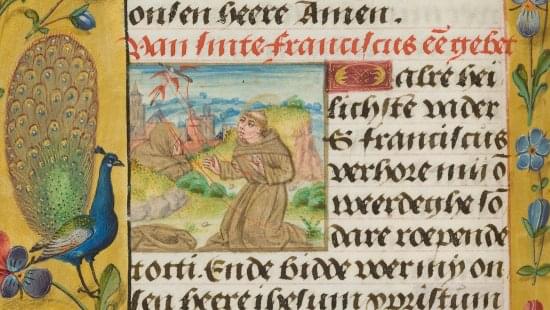 onsen heere Amen.
Van sinte franciscus eē gebet
O alre hei
lichste vader
S franciscus
verhore mij ō
weerdeghe sō
dare roepende
totti. Ende bidde voer mij on
sen heere ihesum xpristum